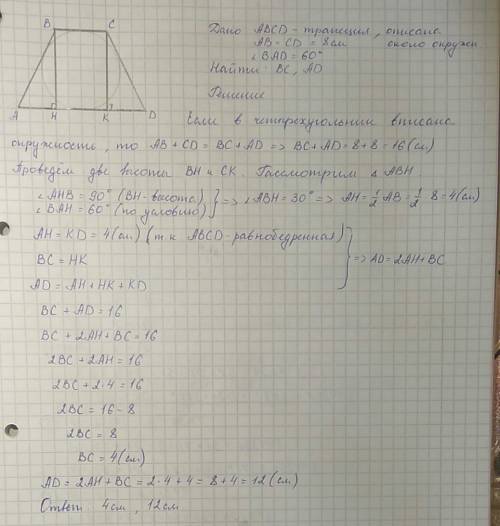 B C
A H K D
Дано ABCD - трапеция, описана
AB = CD = 8 см около окружн
∠BAD = 60°
Найти: BC, AD
Решение
Если в четырехугольник вписана
окружность, то AB + CD = BC + AD => BC + AD = 8 + 8 = 16 (см)
Проведём две высоты BH и CK. Рассмотрим △ ABH
∠AHB = 90° (BH - высота)
∠BAH = 60° (по условию) } => ∠ABH = 30° => AH = 1/2 AB = 1/2 · 8 = 4 (см)
AH = KD = 4 (см) (т к ABCD - равнобедренная)
BC = HK } => AD = 2AH + BC
AD = AH + HK + KD
BC + AD = 16
BC + 2AH + BC = 16
2BC + 2AH = 16
2BC + 2·4 = 16
2BC = 16 - 8
2BC = 8
BC = 4 (см)
AD = 2AH + BC = 2·4 + 4 = 8 + 4 = 12 (см)
Ответ: 4 см, 12 см